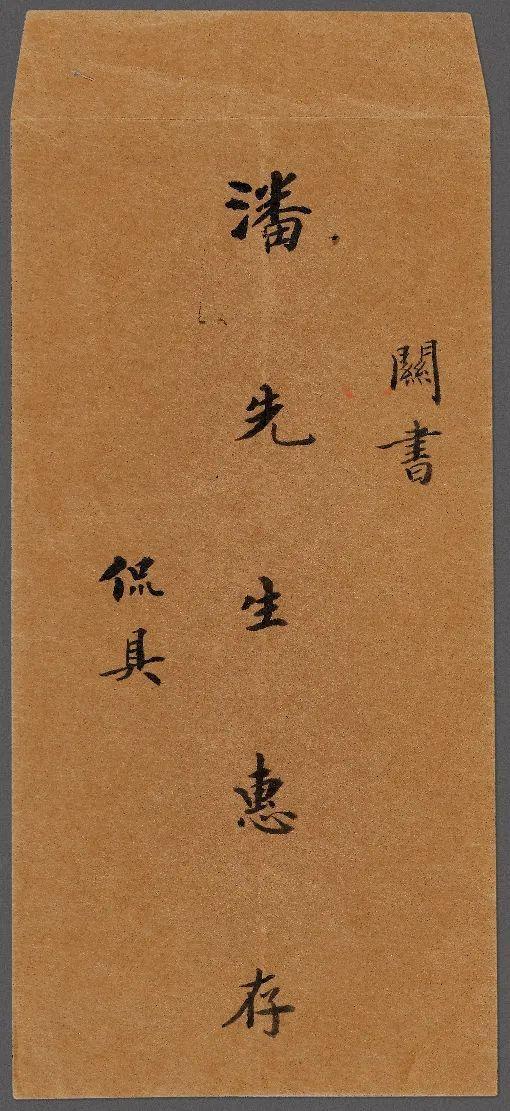 關書
潘先生惠存
侃具